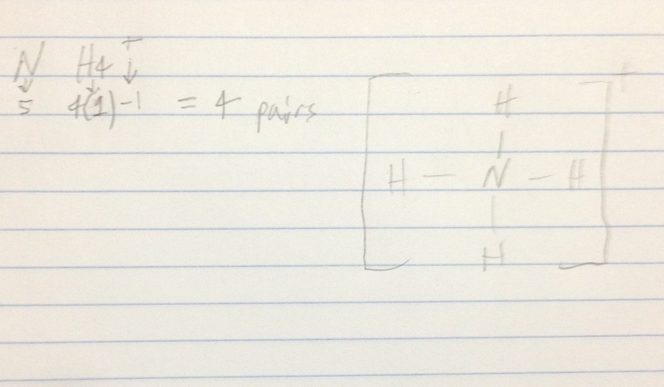 N H4 +
5 4(1) -1 = 4 pairs
+
H
H — N — H
H